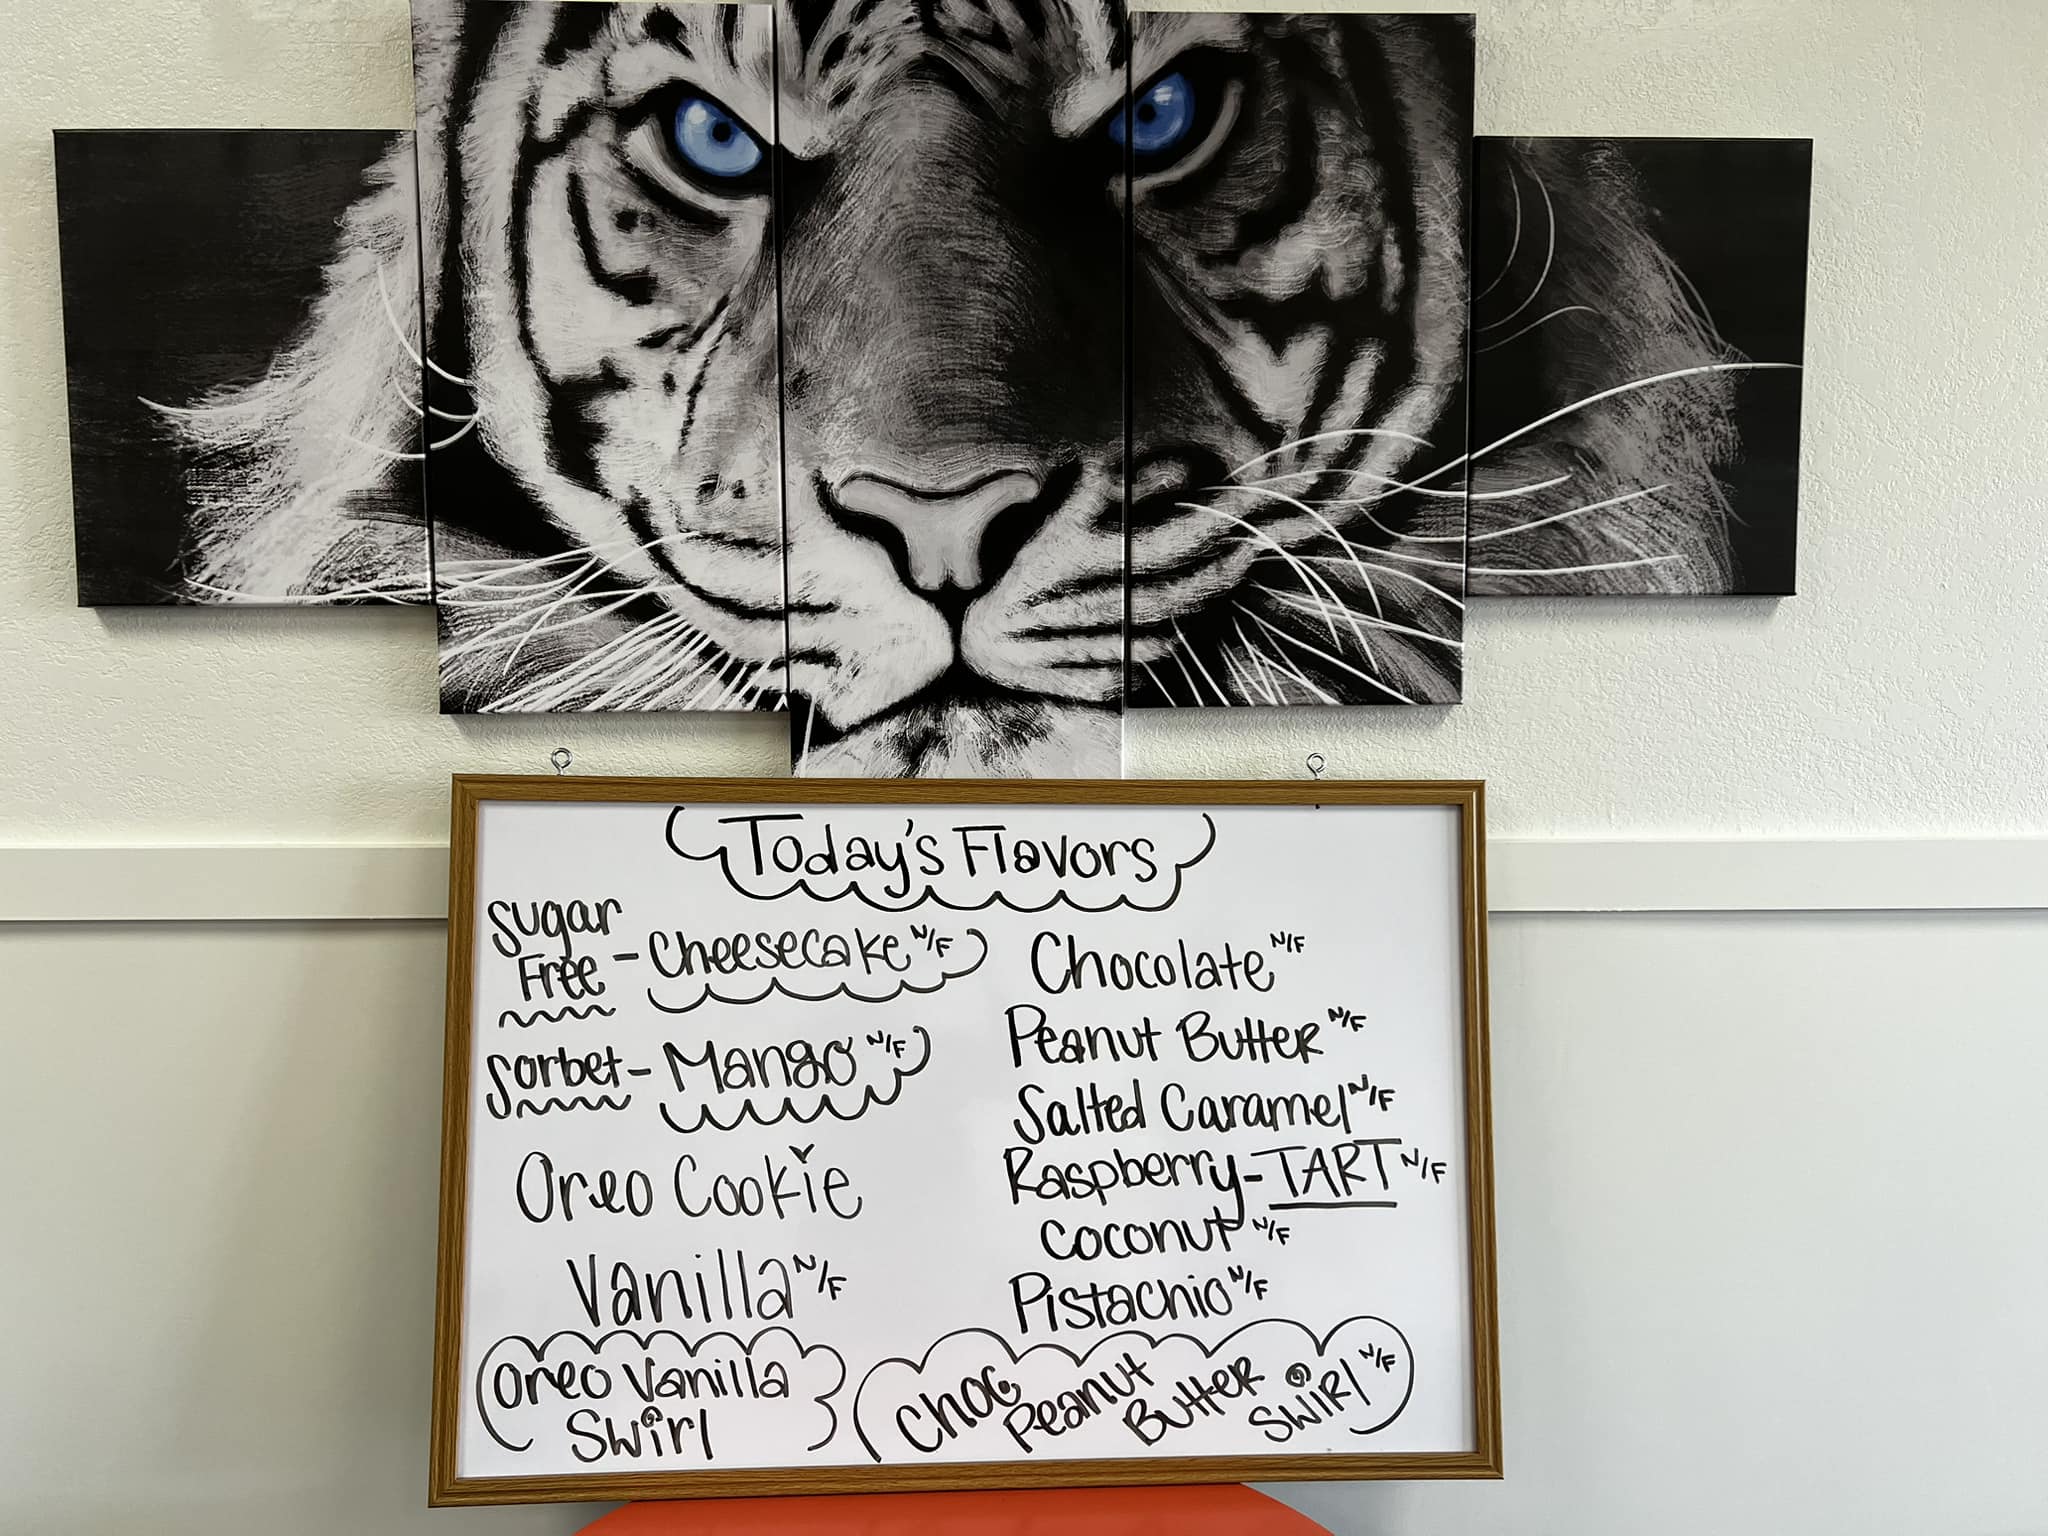 Today's Flavors
Sugar
Free - Cheesecake N/F
Sorbet - Mango N/F
Oreo Cookie
Vanilla N/F
Oreo Vanilla
Swirl
Chocolate N/F
Peanut Butter N/F
Salted Caramel N/F
Raspberry - TART N/F
Coconut N/F
Pistachio N/F
Choc. Peanut Butter Swirl N/F